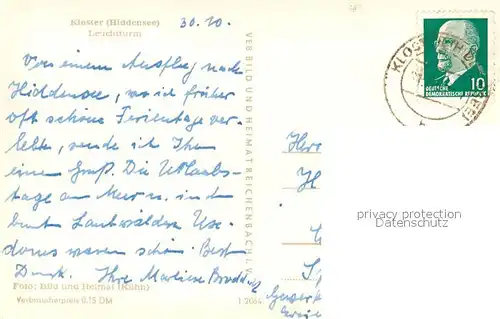 Kloster (Hiddensee)
Leuchtturm
30.10.
Von einem Ausflug nach
Hiddensee, wo ich früher
oft schöne Ferientage ver-
lebte, sende ich Ihnen
einen Gruß. Die Urlaubs-
tage am Meer u. in den
bunt. Laubwäldern Use-
doms waren schön. Best.
Dank. Ihre Marliese
Foto: Bild und Heimat (Kühn)
Verbraucherpreis 0.15 DM
VEB BILD UND HEIMAT REICHENBACH I. V.
KLOSTER
10
DEUTSCHE
DEMOKRATISCHE REPUBLIK
Herr
privacy protection
Datenschutz